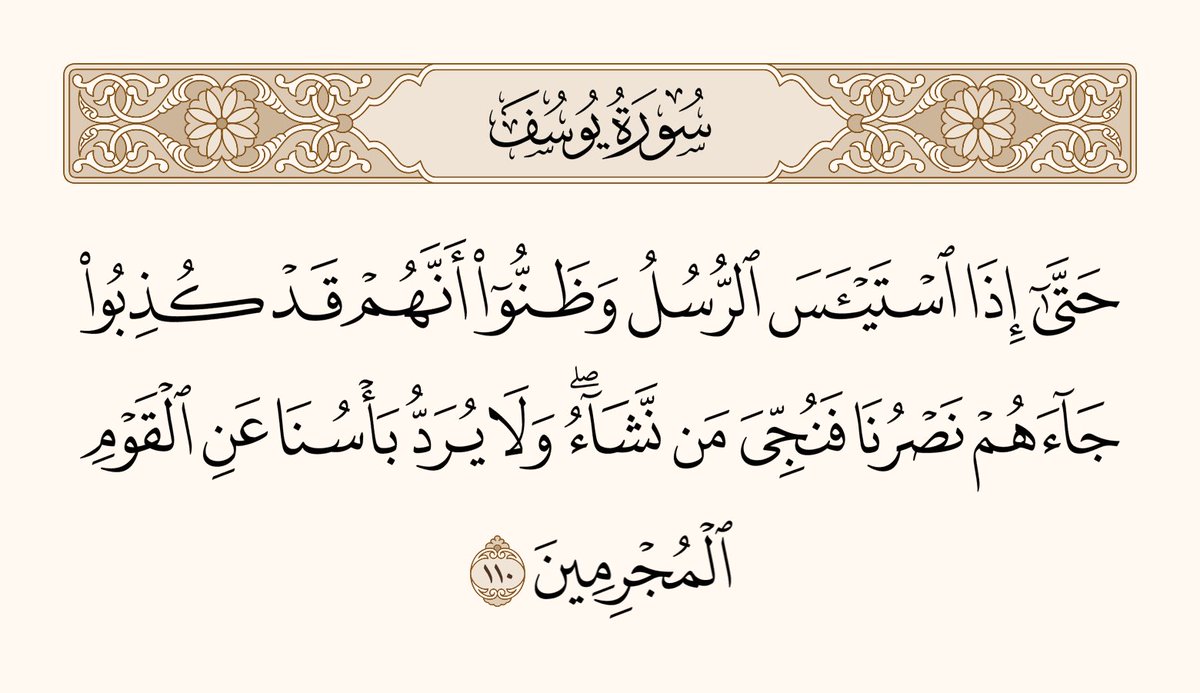 سُورَةُ يُوسُفَ
حَتَّىٰٓ إِذَا ٱسْتَيْـَٔسَ ٱلرُّسُلُ وَظَنُّوٓا۟ أَنَّهُمْ قَدْ كُذِبُوا۟
جَآءَهُمْ نَصْرُنَا فَنُجِّىَ مَن نَّشَآءُ ۖ وَلَا يُرَدُّ بَأْسُنَا عَنِ ٱلْقَوْمِ
ٱلْمُجْرِمِينَ ١١٠